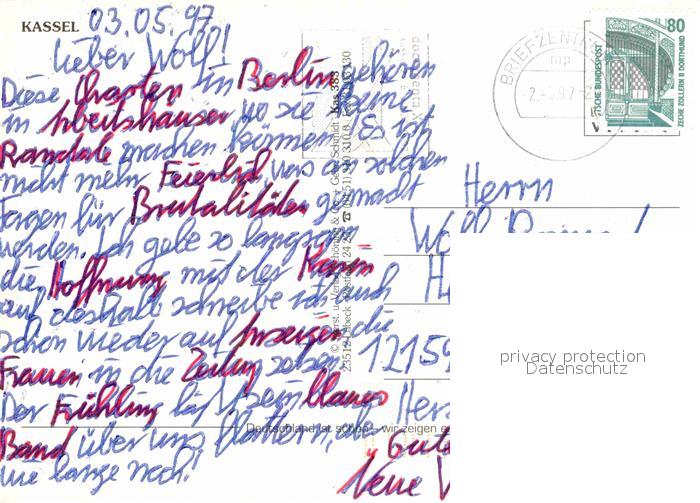 KASSEL 03.05.97
Lieber Wolf!
Diese Chaoten in Berlin gehören
in Arbeitshäuser wo sie keine
Randale machen können! Es ist
nicht mehr Feierlich was an solchen
Tagen für Brutalitäten gemacht
werden. Ich gebe so langsam
die Hoffnung mit der Karin
auf deshalb schreibe ich auch
schon wieder auf Anzeigen die
Frauen in die Zeitung setzen.
Der Frühling läßt sein blaues
Band über uns flattern,
wie lange noch!
Deutschland ist schön - wir zeigen e
BRIEFZENTR
mp
-2.-5.97-2
80
DEUTSCHE BUNDESPOST
ZECHE ZOLLERN II DORTMUND
Herrn
12159
Her
Gute
Neue
privacy protection
Datenschutz